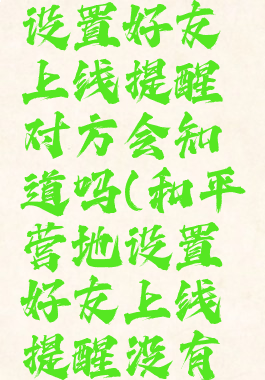 设置好友
上线提醒
对方会知
道吗(和平
营地设置
好友上线
提醒没有